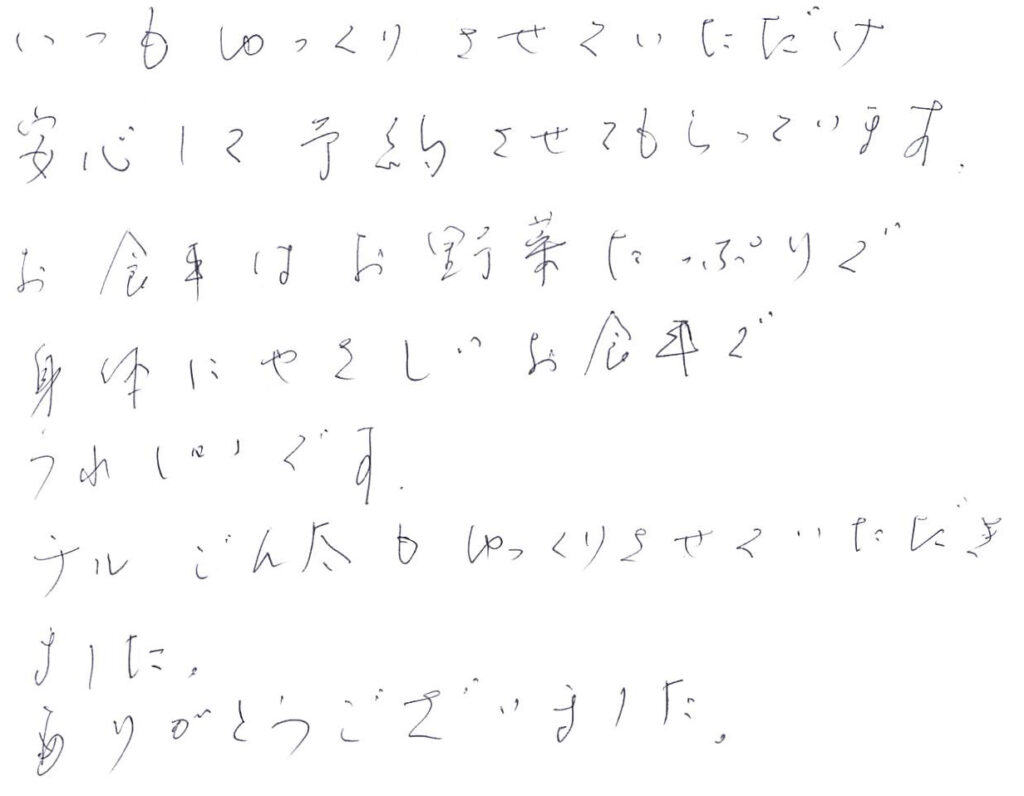 いつもゆっくりさせていただけ
安心して予約させてもらっています。
お食事はお野菜たっぷりで
身体にやさしいお食事で
うれしいです。
テル ごん太もゆっくりさせていただき
ました。
ありがとうございました。